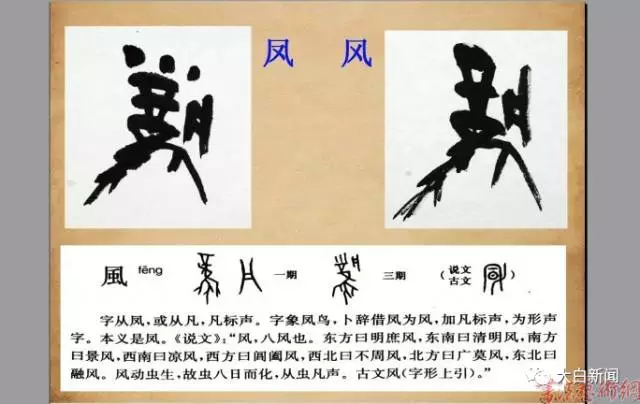 凤 风
風 fēng 一期 三期 (说文古文)
字从凤，或从凡，凡标声。字象凤鸟，卜辞借凤为风，加凡标声，为形声
字。本义是凤。《说文》：“风，八风也。东方曰明庶风，东南曰清明风，南方
曰景风，西南曰凉风，西方曰阊阖风，西北曰不周风，北方曰广莫风，东北曰
融风。风动虫生，故虫八日而化，从虫凡声。古文风(字形上引)。”
大白新闻